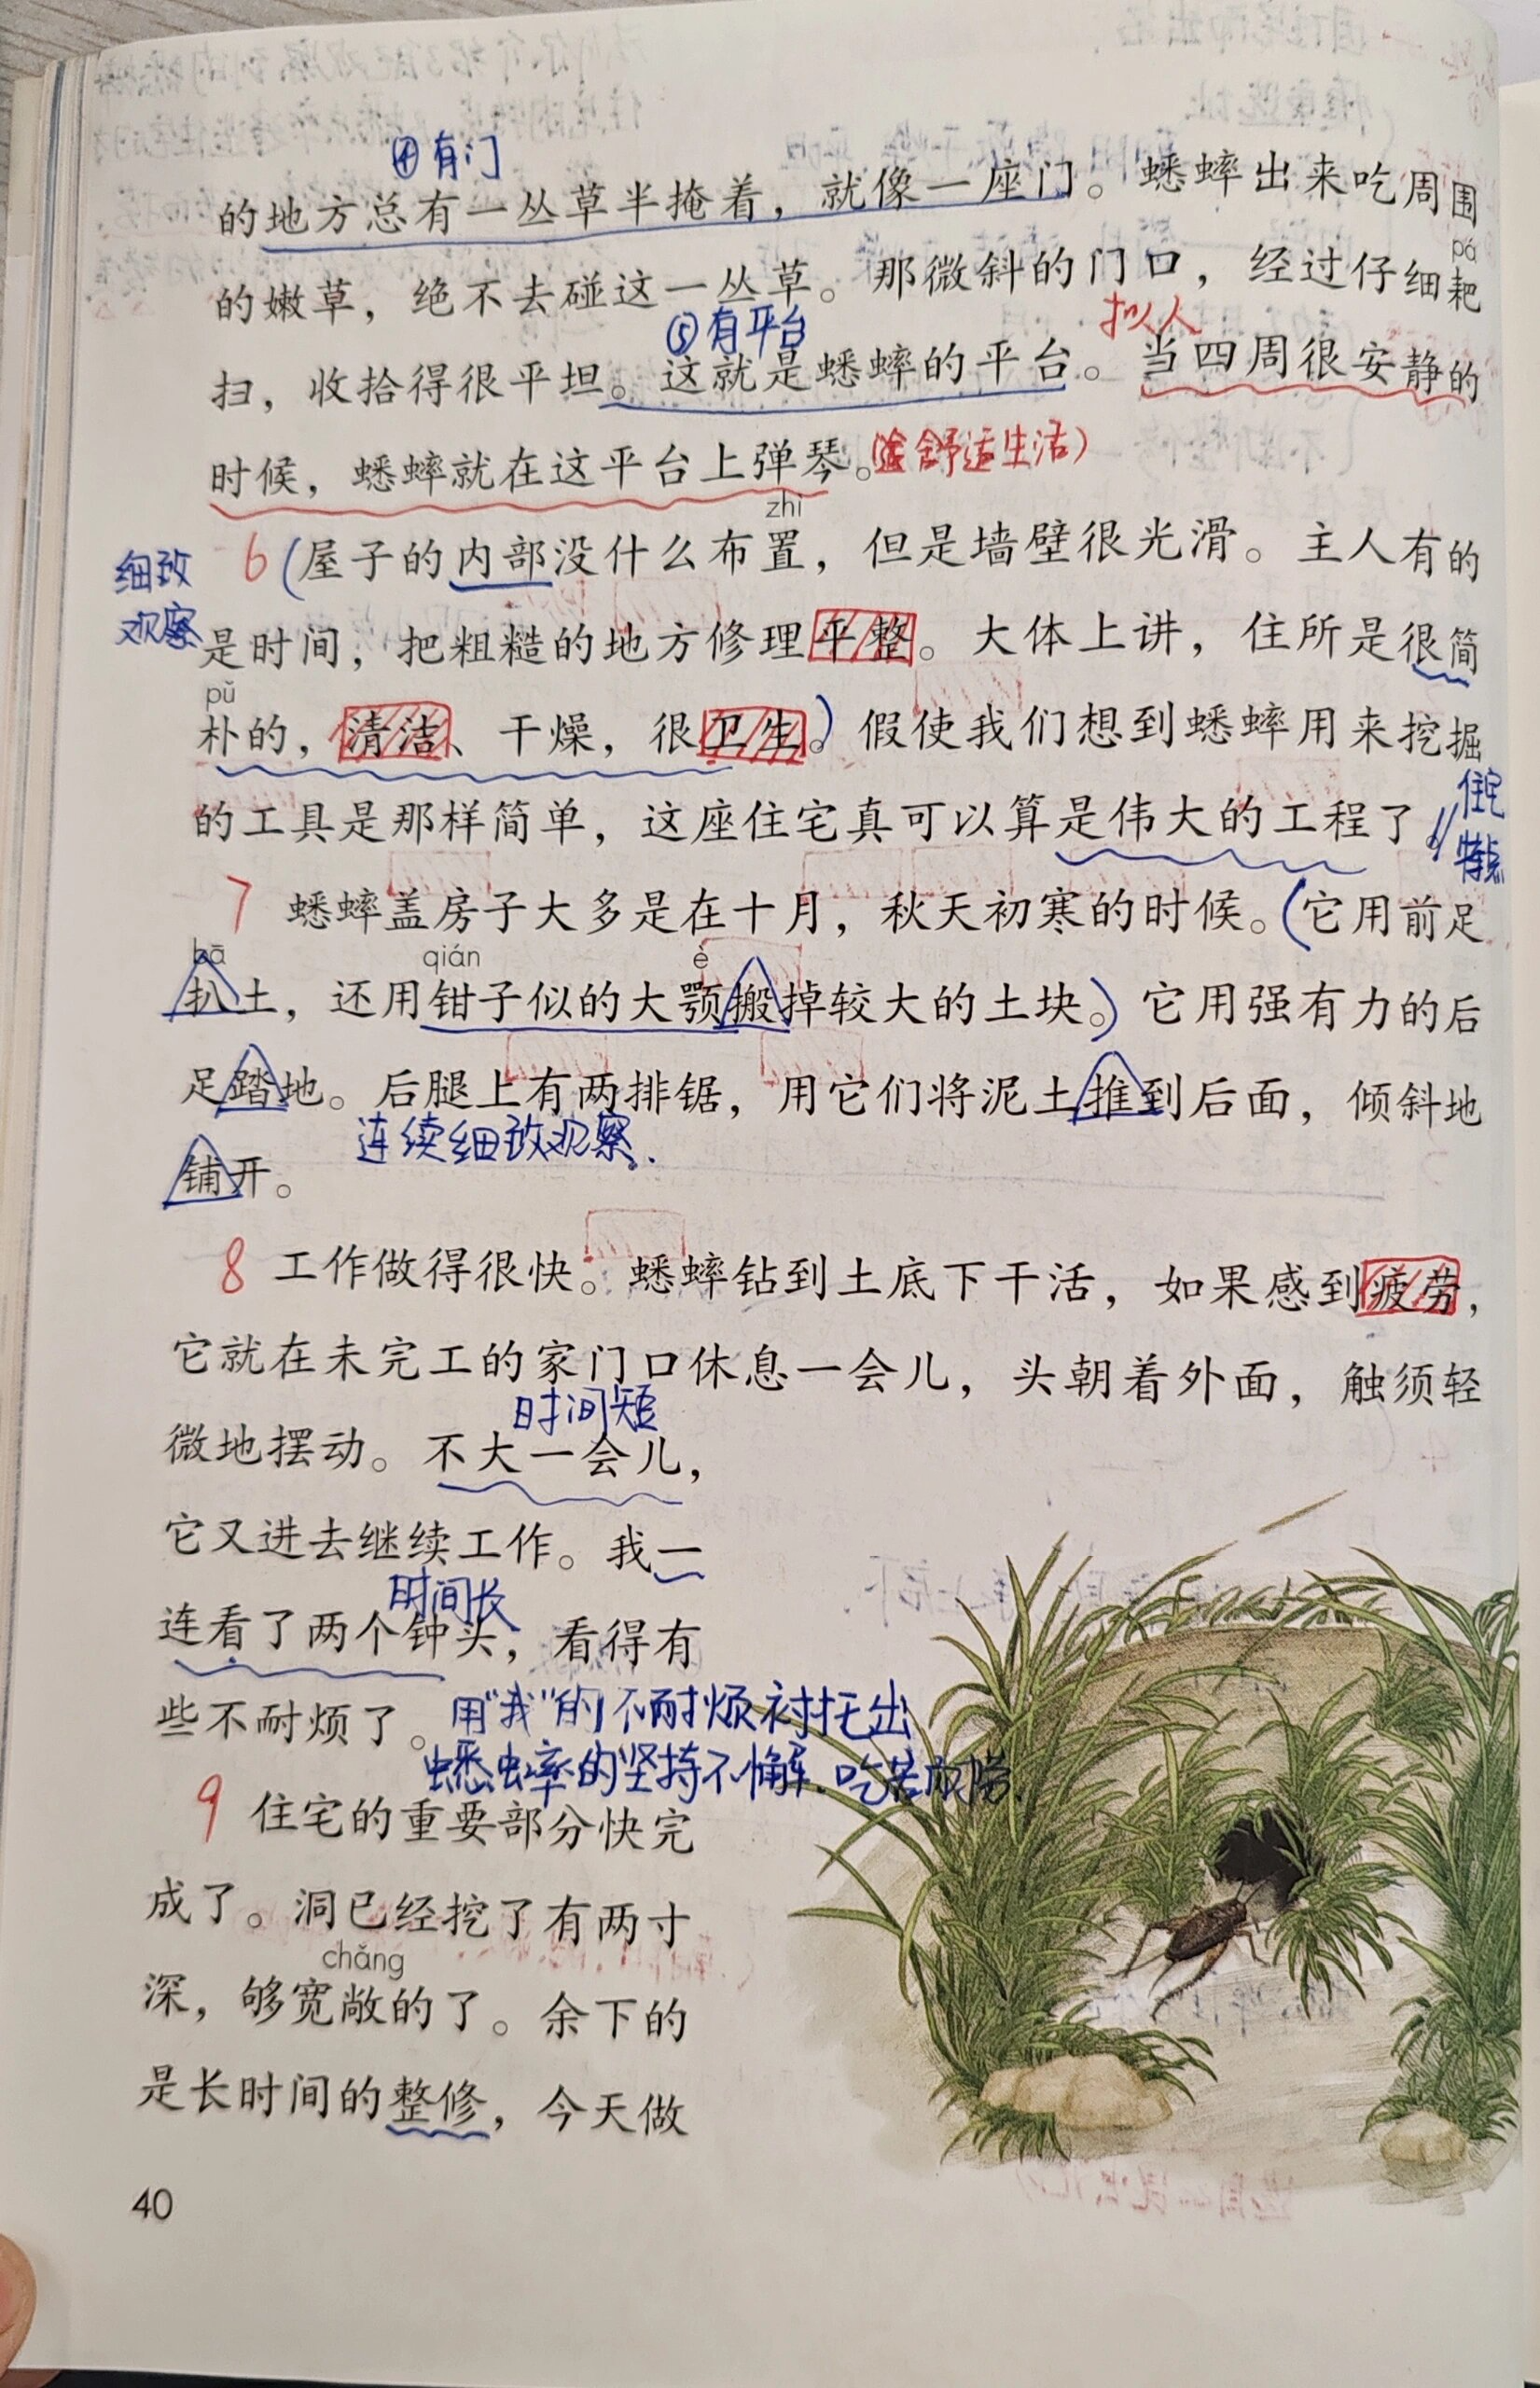 ④有门
的地方总有一丛草半掩着，就像一座门。蟋蟀出来吃周围
pá
的嫩草，绝不去碰这一丛草。那微斜的门口，经过仔细耙
⑤有平台 拟人
扫，收拾得很平坦。这就是蟋蟀的平台。当四周很安静的
时候，蟋蟀就在这平台上弹琴。（舒适生活）
zhì
细致
观察
6（屋子的内部没什么布置，但是墙壁很光滑。主人有的
是时间，把粗糙的地方修理平整。大体上讲，住所是很简
pǔ
朴的，清洁、干燥，很卫生。）假使我们想到蟋蟀用来挖掘
的工具是那样简单，这座住宅真可以算是伟大的工程了。
住宅
特点
7 蟋蟀盖房子大多是在十月，秋天初寒的时候。（它用前足
bā qián è
扒土，还用钳子似的大颚搬掉较大的土块。）它用强有力的后
足踏地。后腿上有两排锯，用它们将泥土推到后面，倾斜地
连续细致观察.
铺开。
8 工作做得很快。蟋蟀钻到土底下干活，如果感到疲劳，
它就在未完工的家门口休息一会儿，头朝着外面，触须轻
时间短
微地摆动。不大一会儿，
它又进去继续工作。我一
时间长
连看了两个钟头，看得有
些不耐烦了。
用“我”的不耐烦衬托出
蟋蟀的坚持不懈.吃苦耐劳.
9 住宅的重要部分快完
成了。洞已经挖了有两寸
chǎng
深，够宽敞的了。余下的
是长时间的整修，今天做
40